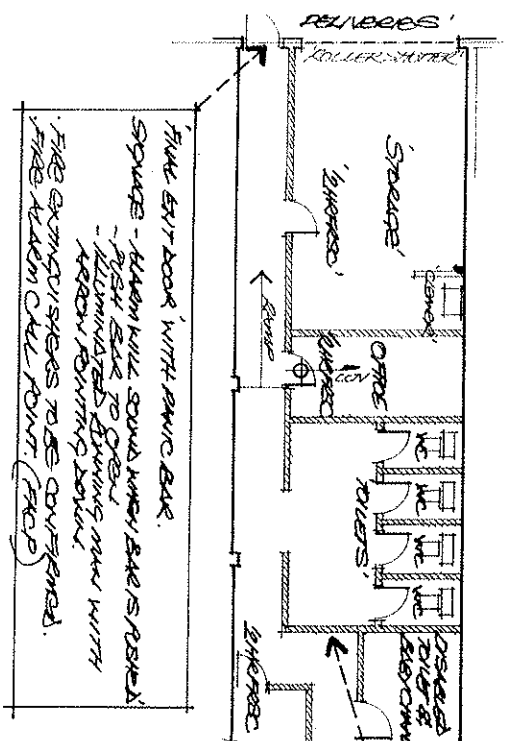 'DELIVERIES'
'ROLLER SHUTTER'
'STORAGE'
'½HRFRSC'
'COMMS'
OFFICE
CCTV
½HRFRSC
RAMP
WC
WC
WC
WC
'TOILETS'
DISABLED
TOILET &
BABY CHAN
½HRFRSC
'FINAL EXIT DOOR' WITH PANIC BAR.
- ALARM WILL SOUND WHEN BAR IS PUSHED
- PUSH BAR TO OPEN
- ILLUMINATED RUNNING MAN WITH
ARROW POINTING DOWN.
· FIRE EXTINGUISHERS TO BE CONFIRMED.
· FIRE ALARM CALL POINT. (FACP)